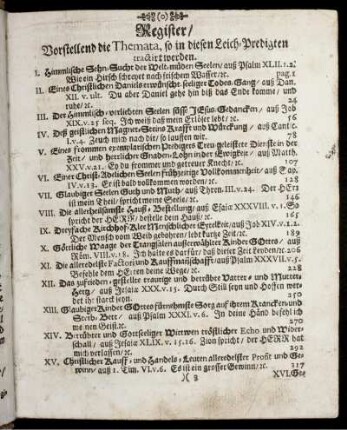 (0)
Register/
Vorstellend die Themata, so in diesen Leich-Predigten
tractirt werden.
I. Himmlische Sehn-Sucht der Welt-müden Seelen/ auß Psalm XLII.1.2.
Wie ein Hirsch schreyet nach frischen Wasser/ꝛc. pag.1
II. Eines Christlichen Daniels erwünscht-seeliger Todes-Gang/ auß Dan.
XII. v. ult. Du aber Daniel gehe hin biß das Ende komme/ und
ruhe/ꝛc. 24
III. Der Himmlisch-verliebten Seelen süsse JEsus-Gedancken/ auß Job
XIX.v.25 seq. Ich weiß daß mein Erlöser lebt/ꝛc. 56
IV. Deß geistlichen Magnet-Steins Krafft und Würckung/ auß Cantic.
I.v.4. Zeuch mich nach dir/ so lauffen wir. 78
V. Eines frommen exemplarischen Predigers Treu-geleistete Dienst in der
Zeit/ und herrlicher Gnaden-Lohn in der Ewigkeit/ auß Matth.
XXV.v.21. Ey du frommer und getreuer Knecht/ꝛc. 107
VI. Einer Christ-Adelichen Seelen frühzeitige Vollkommenheit/ auß Sap.
IV.v.13. Er ist bald vollkommen worden/ꝛc. 128
VII. Glaubiger Seelen Guth und Muth/ auß Thren.III.v.24. Der HErr
ist mein Theil/ spricht meine Seele/ꝛc. 146
VIII. Die allerheilsamste Hauß-Bestellung/ auß Esaiæ XXXVIII.v.1. So
spricht der HERR/ bestelle dein Hauß/ꝛc. 165
IX. Dreyfache Kirchhof-Klee Menschlicher Gebrechen/ auß Job XIV.v.1.2.
Der Mensch vom Weib gebohren/ lebt kurtze Zeit/ꝛc. 189
X. Göttliche Waage der Trangsalen außerwöhlter Kinder GOttes/ auß
Röm. VIII.v.18. Ich halte es darfür/ daß dieser Zeit Leyden/ꝛc. 206
XI. Die allerbeste Factorin und Kauffmannschafft/ auß Psalm XXXVII.v.5.
Befehle dem HErrn deine Wege/ꝛc. 228
XII. Das zufrieden-gestellte traurige und betrübte Vatter- und Mutter-
Hertz/ auß Jesaiæ XXX.v.15. Durch Still seyn und Hoffen wer-
det ihr starck seyn. 250
XIII. Glaubiger Kinder GOttes fürnehmste Sorg auf ihrem Krancken- und
Sterb-Bett/ auß Psalm XXXI.v.6. In deine Händ befehl ich
meinen Geist/ꝛc. 270
XIV. Betrübter und Gottseeliger Wittwen tröstlicher Echo und Wider-
schall/ auß Jesaiæ XLIX.v.15.16. Zion spricht/ der HERR hat
mich verlassen/ꝛc. 292
XV. Christlicher Kauff- und Handels-Leuten allerbester Profit und Ge-
winn/ auß 1. Tim. VI.v.6. Es ist ein grosser Gewinn/ꝛc. 317
XVI.